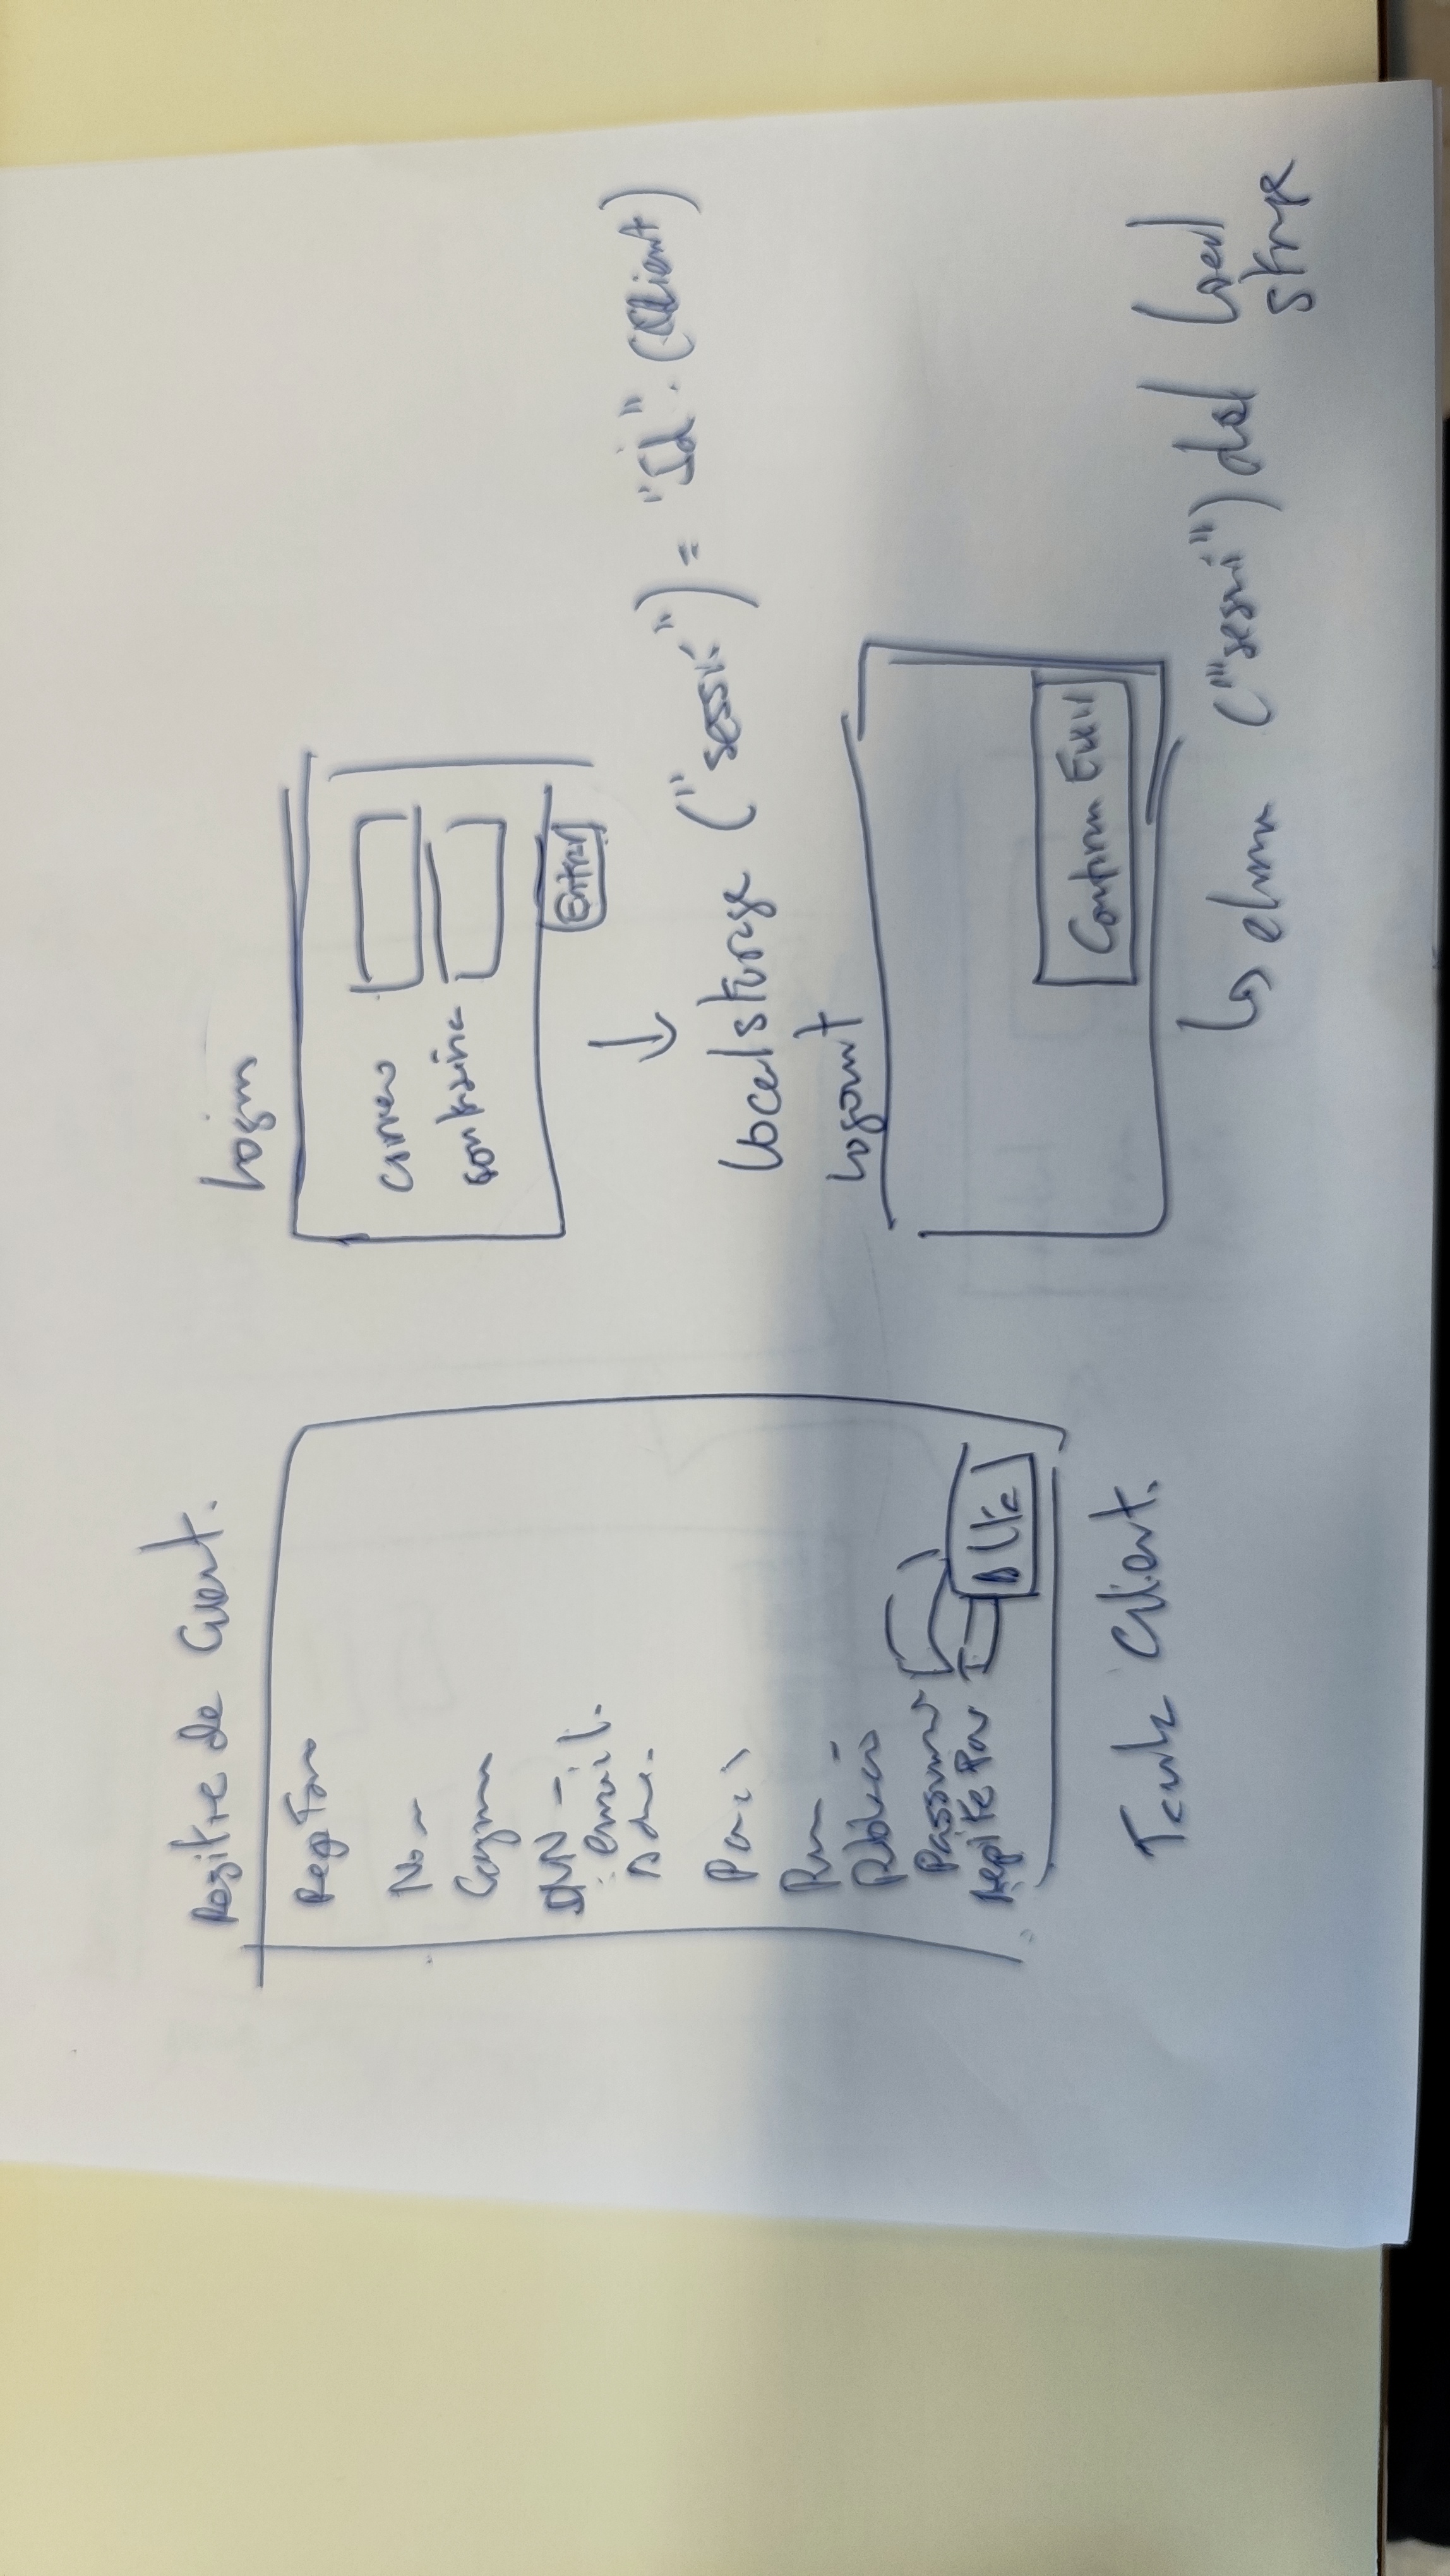 Registre de Client.
Nom
Cognom
email.
Pais
Población
Password
Repite Pas
Alta
Taula Client.
Login
correo
contraseña
Entrar
Localstorage ("sessió") = "Id". (Client)
Logout
Confirm Exit
("sessió") del Local
storage